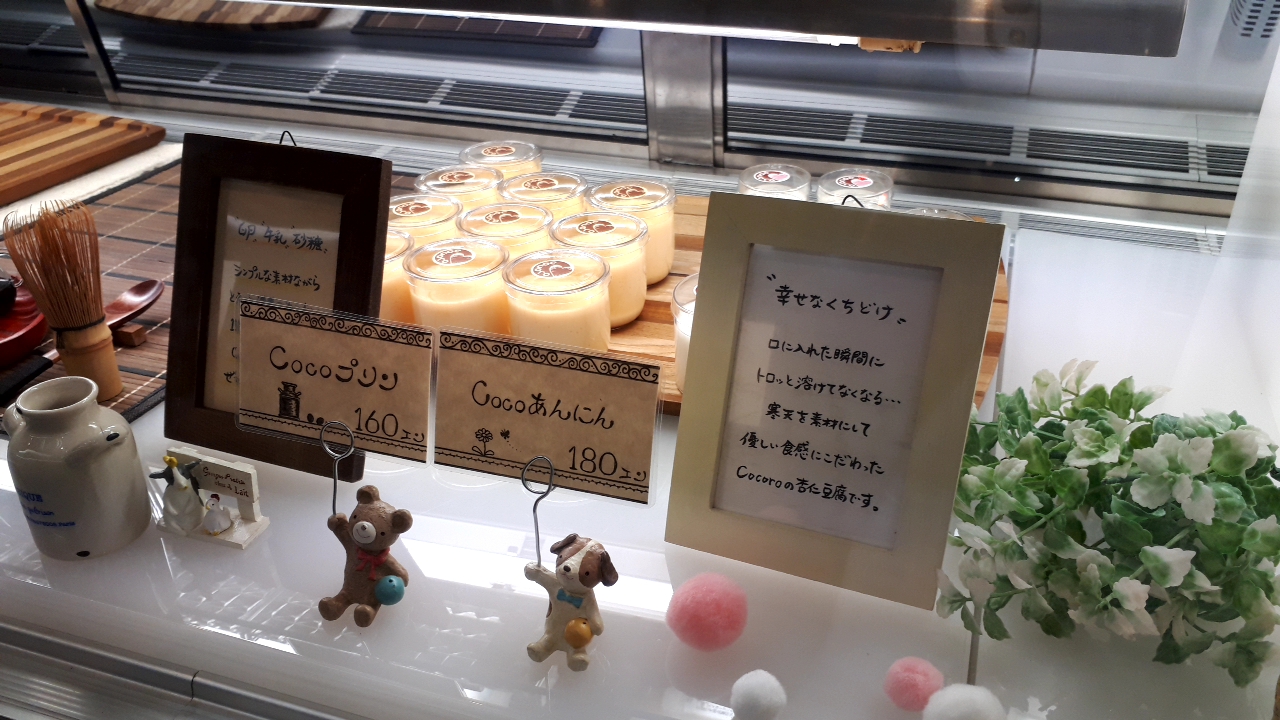 卵、牛乳、砂糖、
シンプルな素材ながら
Cocoプリン
160エン
Cocoあんにん
180エン
〝幸せなくちどけ〟
口に入れた瞬間に
トロッと溶けてなくなる…
寒天を素材にして
優しい食感にこだわった
Cocoroの杏仁豆腐です。